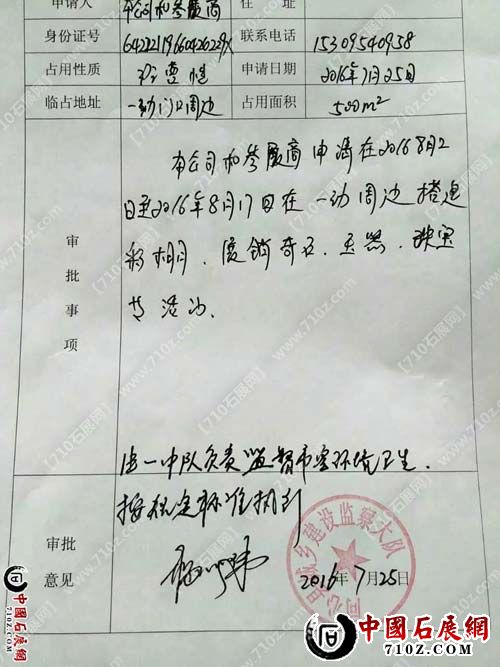 申请人 本公司和参展商 住址
身份证号 联系电话 15309540958
占用性质 临时性 申请日期 2016年7月25日
临占地址 一幼门口周边 占用面积 500m²
审批事项
本公司和参展商申请在2016年8月2
日至2016年8月17日在一幼周边搭建
彩棚、展销奇石、玉器、珠宝
等活动。
由一中队负责监督市容环境卫生.
按规定标准执行
审批意见
2016年7月25日
同心县城乡建设监察大队
【710石展网】 www.710z.com
中國石展網
710z.com
中國石展網
710z.com